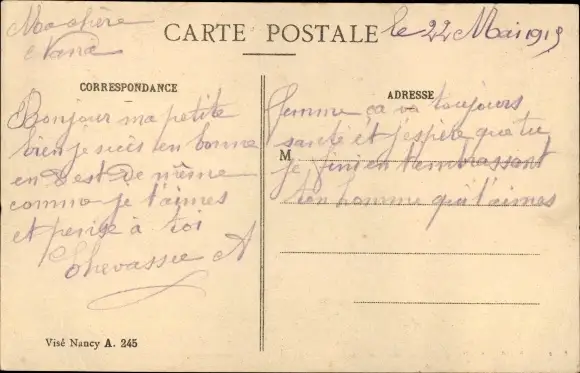 Ma chère
Nana
CARTE POSTALE
le 22 Mai 1915
CORRESPONDANCE
ADRESSE
Bonjour ma petite
femme ça va toujours
bien je suis en bonne
santé et j'espère que tu
en est de même
M
je fini en t'embrassant
comme je t'aimes
ton homme qui t'aimes
et pense à toi
Chevassu A
Visé Nancy A. 245